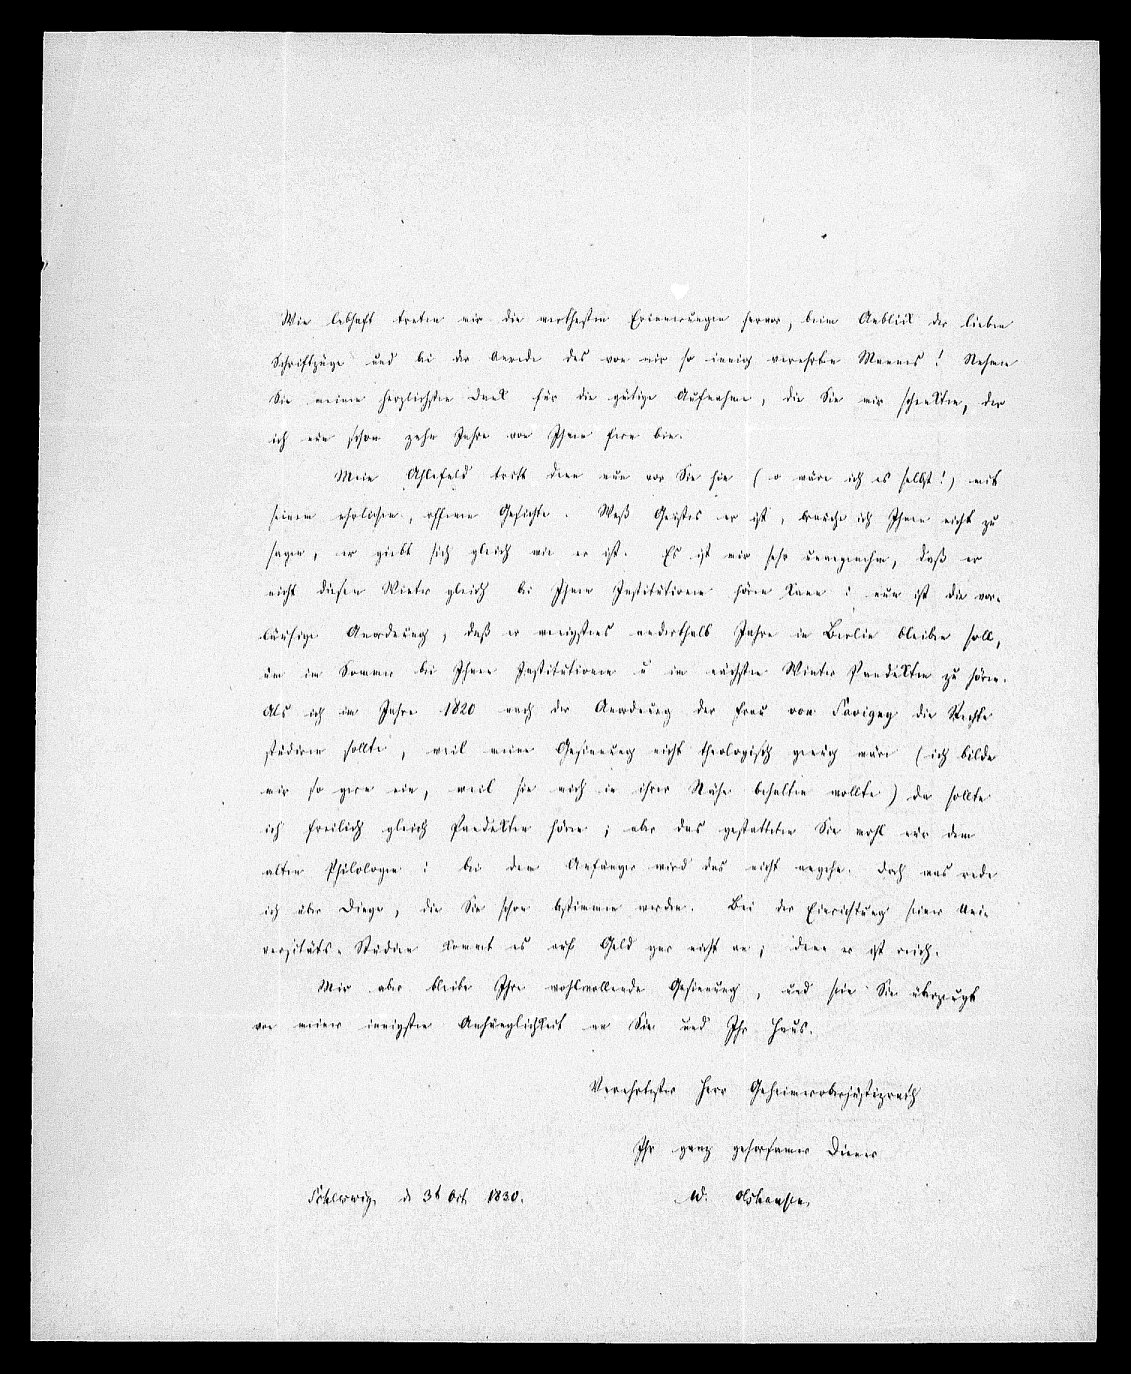 Wie lebhaft treten mir die werthesten Erinnerungen hervor, beim Anblick der lieben
Schriftzüge und bei der Anrede des von mir so innig verehrten Mannes! Nehmen
Sie meinen herzlichsten Dank für die gütige Aufnahme, die Sie mir schenkten, der
ich nun schon zehn Jahre von Ihnen fern bin.
Mein Ahlefeld tritt denn nun vor Sie hin (o wäre ich es selbst!) mit
seinem ehrlichen, offenen Gesichte. Weß Geistes er ist, brauche ich Ihnen nicht zu
sagen, er giebt sich gleich wie er ist. Es ist mir sehr unangenehm, daß er
nicht diesen Winter gleich bei Ihnen Institutionen hören kann: nun ist die vor-
läufige Anordnung, daß er wenigstens anderthalb Jahre in Berlin bleiben soll,
um im Sommer bei Ihnen Institutionen u im nächsten Winter Pandekten zu hören.
Als ich im Jahre 1820 nach der Anordnung der Frau von Savigny die Rechte
studiren sollte, weil meine Gesinnung nicht theologisch genug wäre (ich bilde
mir so gern ein, weil sie mich in ihrer Nähe behalten wollte) da sollte
ich freilich gleich Pandekten hören; aber das gestatteten Sie wohl nur dem
alten Philologen: bei dem Anfänger wird das nicht angehn. Doch was rede
ich über Dinge, die Sie schon bestimmen werden. Bei der Einrichtung seiner Uni-
versitäts-Studien kommt es auf Geld gar nicht an; denn er ist reich.
Mir aber bleibe Ihre wohlwollende Gesinnung, und sein Sie überzeugt
von meiner innigsten Anhänglichkeit an Sie und Ihr Haus.
Verehrtester Herr Geheimeroberjustizrath
Ihr ganz gehorsamer Diener
Schleswig, d 3t Oct 1830. W. Olshausen.